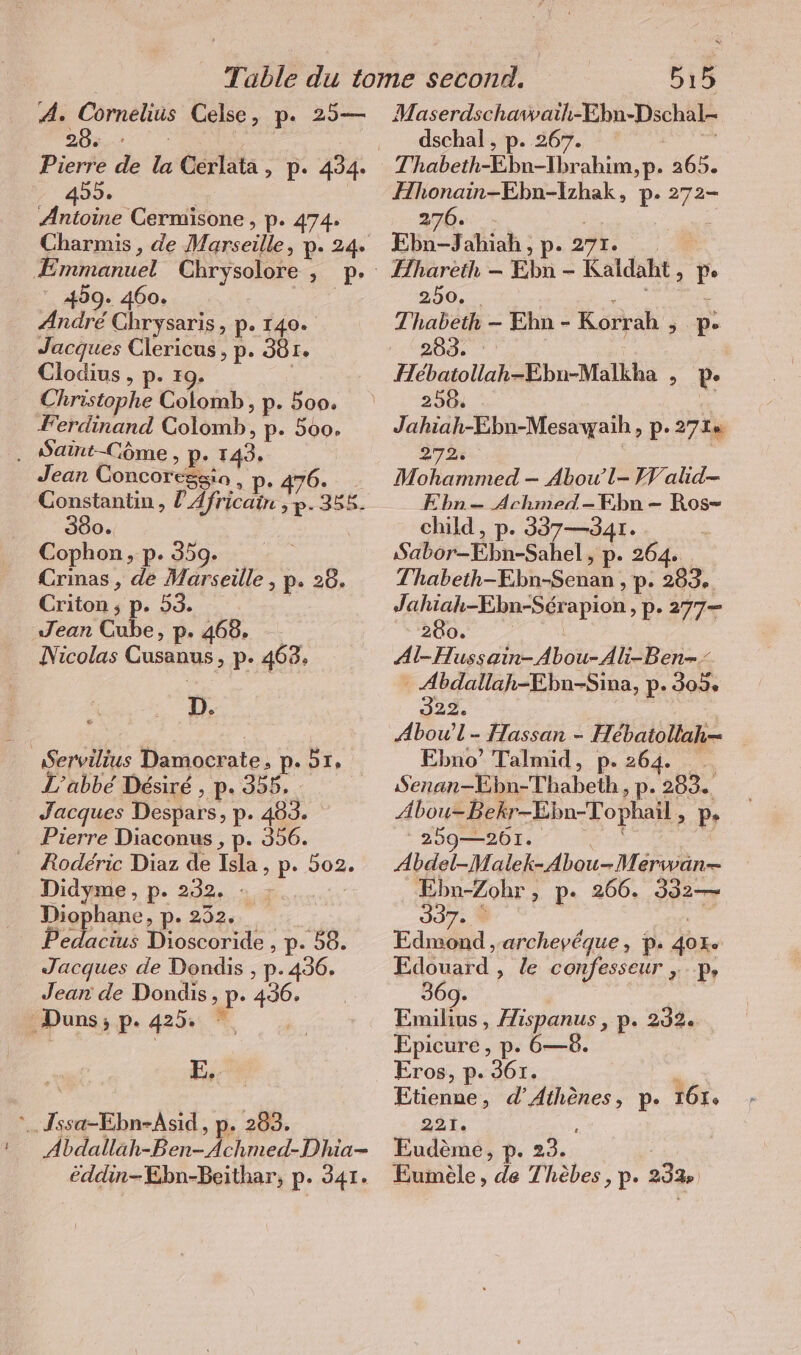 Table du tome second. 515
A. Cornelius Celse, p. 25—
28.
Pierre de la Cerlata, p. 434.
455.
Antoine Cermisone, p. 474.
Charmis, de Marseille, p. 24.
Emmanuel Chrysolore, p.
459. 460.
André Chrysaris, p. 140.
Jacques Clericus, p. 381.
Clodius, p. 19.
Christophe Colomb, p. 500.
Ferdinand Colomb, p. 500.
Saint-Côme, p. 143.
Jean Concoreggio, p. 476.
Constantin, l'Africain, p. 355.
380.
Cophon, p. 359.
Crinas, de Marseille, p. 28.
Criton, p. 53.
Jean Cube, p. 468.
Nicolas Cusanus, p. 463.
D.
Servilius Damocrate, p. 51.
L'abbé Désiré, p. 355.
Jacques Despars, p. 483.
Pierre Diaconus, p. 356.
Rodéric Diaz de Isla, p. 502.
Didyme, p. 232.
Diophane, p. 232.
Pedacius Dioscoride, p. 58.
Jacques de Dondis, p. 436.
Jean de Dondis, p. 436.
Duns, p. 425.
E.
Issa-Ebn-Asid, p. 283.
Abdallah-Ben-Achmed-Dhia-
eddin-Ebn-Beithar, p. 341.
Maserdschawaih-Ebn-Dschal-
dschal, p. 267.
Thabeth-Ebn-Ibrahim, p. 265.
Hhonain-Ebn-Izhak, p. 272-
276.
Ebn-Jahiah, p. 271.
Hhareth - Ebn - Kaldaht, p.
250.
Thabeth - Ehn - Korrah, p.
283.
Hébatollah-Ebn-Malkha, p.
258.
Jahiah-Ebn-Mesawaih, p. 271.
272.
Mohammed - Abou'l-Walid-
Ebn - Achmed - Ebn - Ros-
child, p. 337—341.
Sabor-Ebn-Sahel, p. 264.
Thabeth-Ebn-Senan, p. 283.
Jahiah-Ebn-Sérapion, p. 277-
280.
Al-Hussain-Abou-Ali-Ben-
Abdallah-Ebn-Sina, p. 305.
322.
Abou'l - Hassan - Hébatollah-
Ebno' Talmid, p. 264.
Senan-Ebn-Thabeth, p. 283.
Abou-Bekr-Ebn-Tophail, p.
259—261.
Abdel-Malek-Abou-Merwan-
Ebn-Zohr, p. 266. 332—
337.
Edmond, archevéque, p. 401.
Edouard, le confesseur, p.
369.
Emilius, Hispanus, p. 232.
Epicure, p. 6—8.
Eros, p. 361.
Etienne, d'Athènes, p. 161.
221.
Eudème, p. 23.
Eumèle, de Thèbes, p. 232.